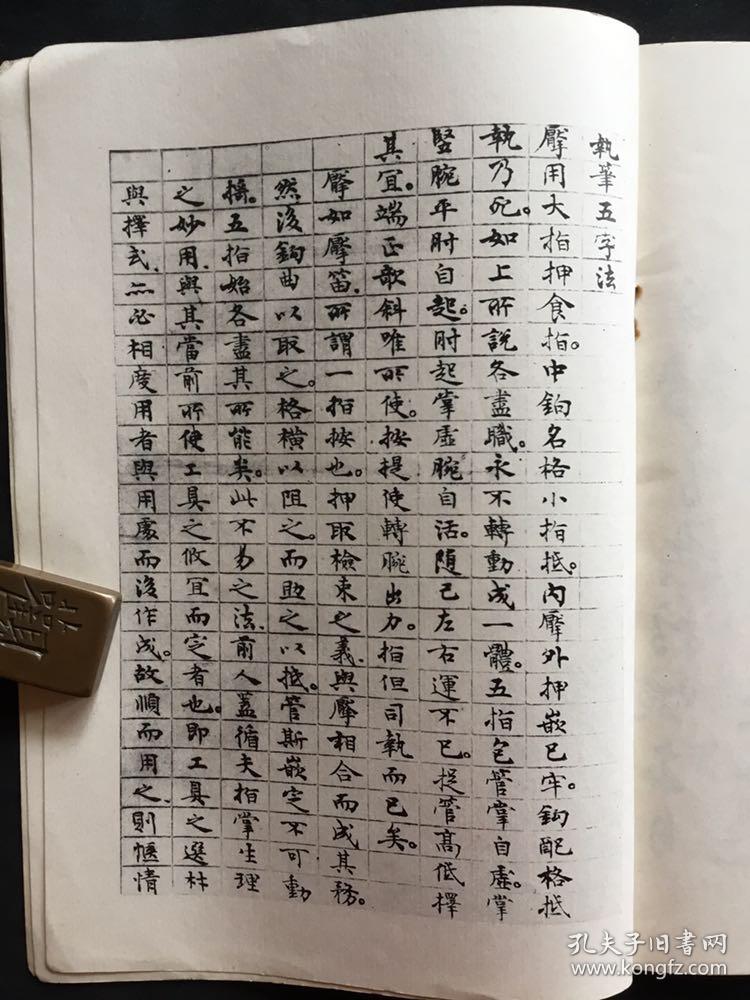 執筆五字法
擪用大指押食指。中鈎名格小指抵。內擪外押嵌已牢。鈎配格抵
執乃死。如上所說各盡職。永不轉動成一體。五指包管掌自虛。掌
豎腕平肘自起。肘起掌虛腕自活。随己左右運不已。捉管高低擇
其宜。端正欹斜唯所使。按提使轉腕出力。指但司執而已矣。
擪如擪笛、所謂一指按也。押取檢束之義、與擪相合而成其務。
然後鈎曲以取之。格橫以阻之。而助之以抵。管斯嵌定不可動
搖。五指始各盡其所能矣。此不易之法、前人蓋循夫指掌生理
之妙用、與其當前所使工具之攸宜而定者也。即工具之選材
與擇式、亦必相度用者與用處而後作成。故順而用之、則愜情
孔夫子旧书网
www.kongfz.com